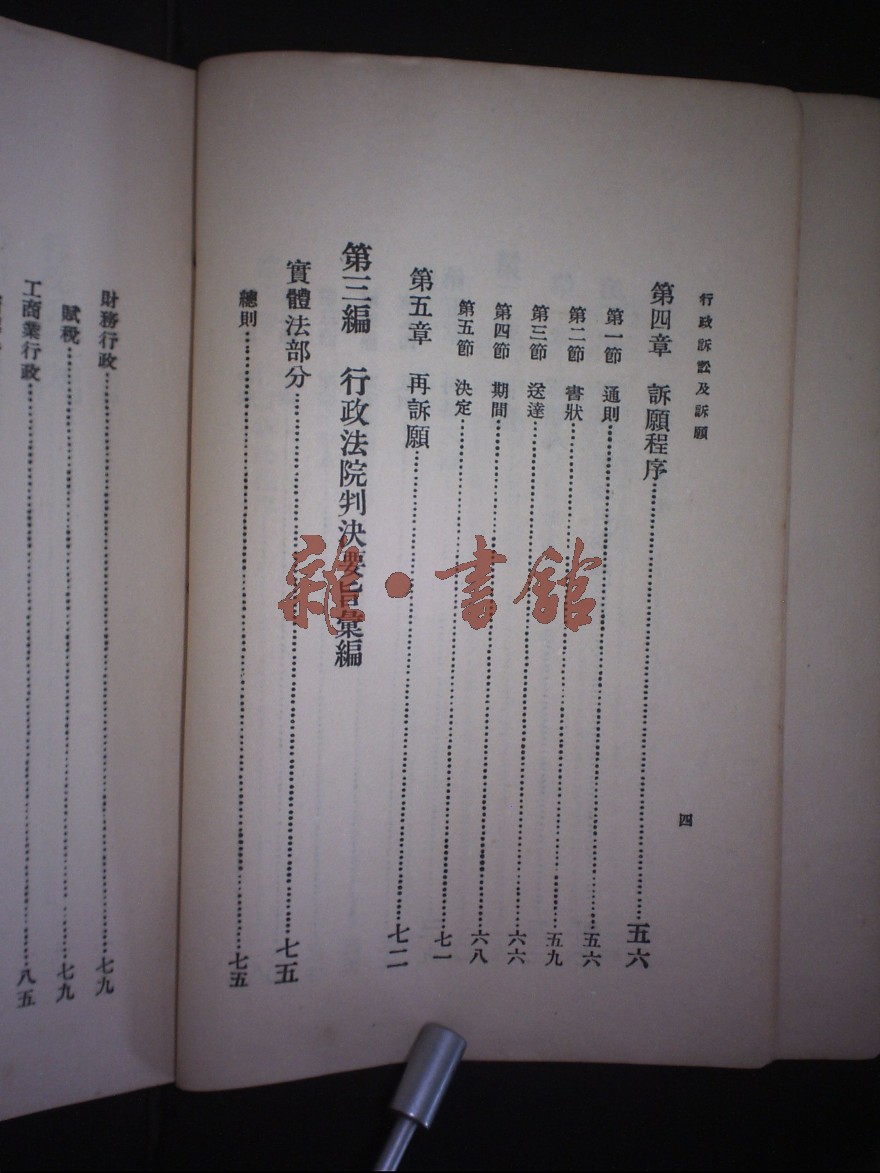 行政訴訟及訴願
四
第四章 訴願程序……五六
第一節 通則……五六
第二節 書狀……五九
第三節 送達……六六
第四節 期間……六八
第五節 決定……七一
第五章 再訴願……七二
第三編 行政法院判決要旨彙編
實體法部分……七五
總則……七五
財務行政……七九
賦稅……七九
工商業行政……八五
雜·書館